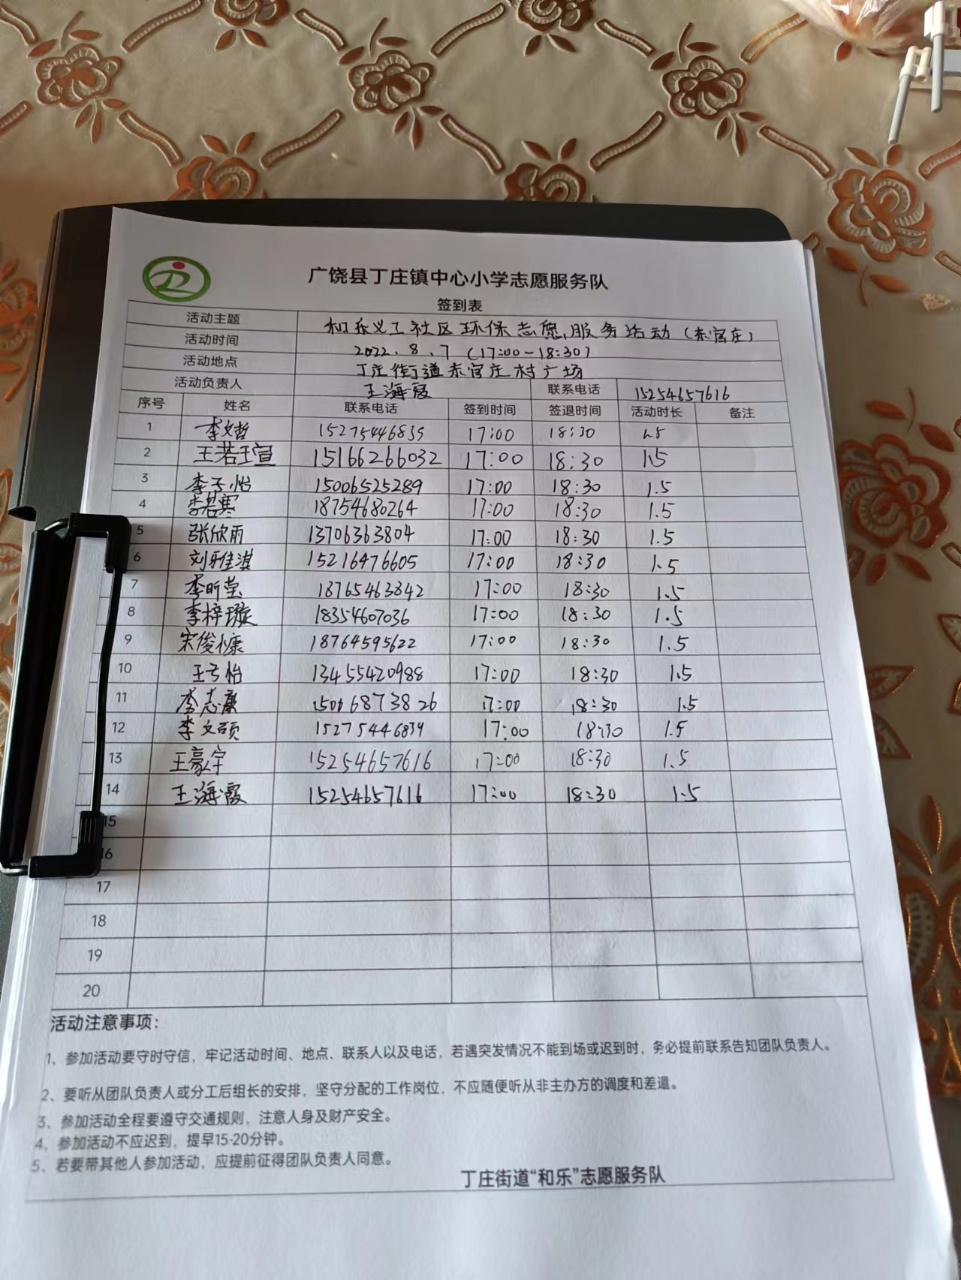 广饶县丁庄镇中心小学志愿服务队
签到表
活动主题 和乐义工社区环保志愿服务活动（东官庄）
活动时间 2022.8.7（17:00-18:30）
活动地点 丁庄街道东官庄村广场
活动负责人 王海霞 联系电话 15254657616
序号 姓名 联系电话 签到时间 签退时间 活动时长 备注
1 李文哲 15275446835 17:00 18:30 1.5
2 王若瑄 15166266032 17:00 18:30 1.5
3 李子怡 15006525289 17:00 18:30 1.5
4 18754680264 17:00 18:30 1.5
5 张欣雨 13706363804 17:00 18:30 1.5
6 刘雅淇 15216476605 17:00 18:30 1.5
7 李昕莹 18765463842 17:00 18:30 1.5
8 李梓璇 18354607036 17:00 18:30 1.5
9 宋俊慷 18764595622 17:00 18:30 1.5
10 王子怡 13455420988 17:00 18:30 1.5
11 李志康 15006873826 17:00 18:30 1.5
12 李文硕 15275446834 17:00 18:30 1.5
13 王豪宇 15254657616 17:00 18:30 1.5
14 王海霞 15254657616 17:00 18:30 1.5
15
16
17
18
19
20
活动注意事项：
1、参加活动要守时守信，牢记活动时间、地点、联系人以及电话，若遇突发情况不能到场或迟到时，务必提前联系告知团队负责人。
2、要听从团队负责人或分工后组长的安排，坚守分配的工作岗位，不应随便听从非主办方的调度和差遣。
3、参加活动全程要遵守交通规则，注意人身及财产安全。
4、参加活动不应迟到，提早15-20分钟。
5、若要带其他人参加活动，应提前征得团队负责人同意。
丁庄街道“和乐”志愿服务队